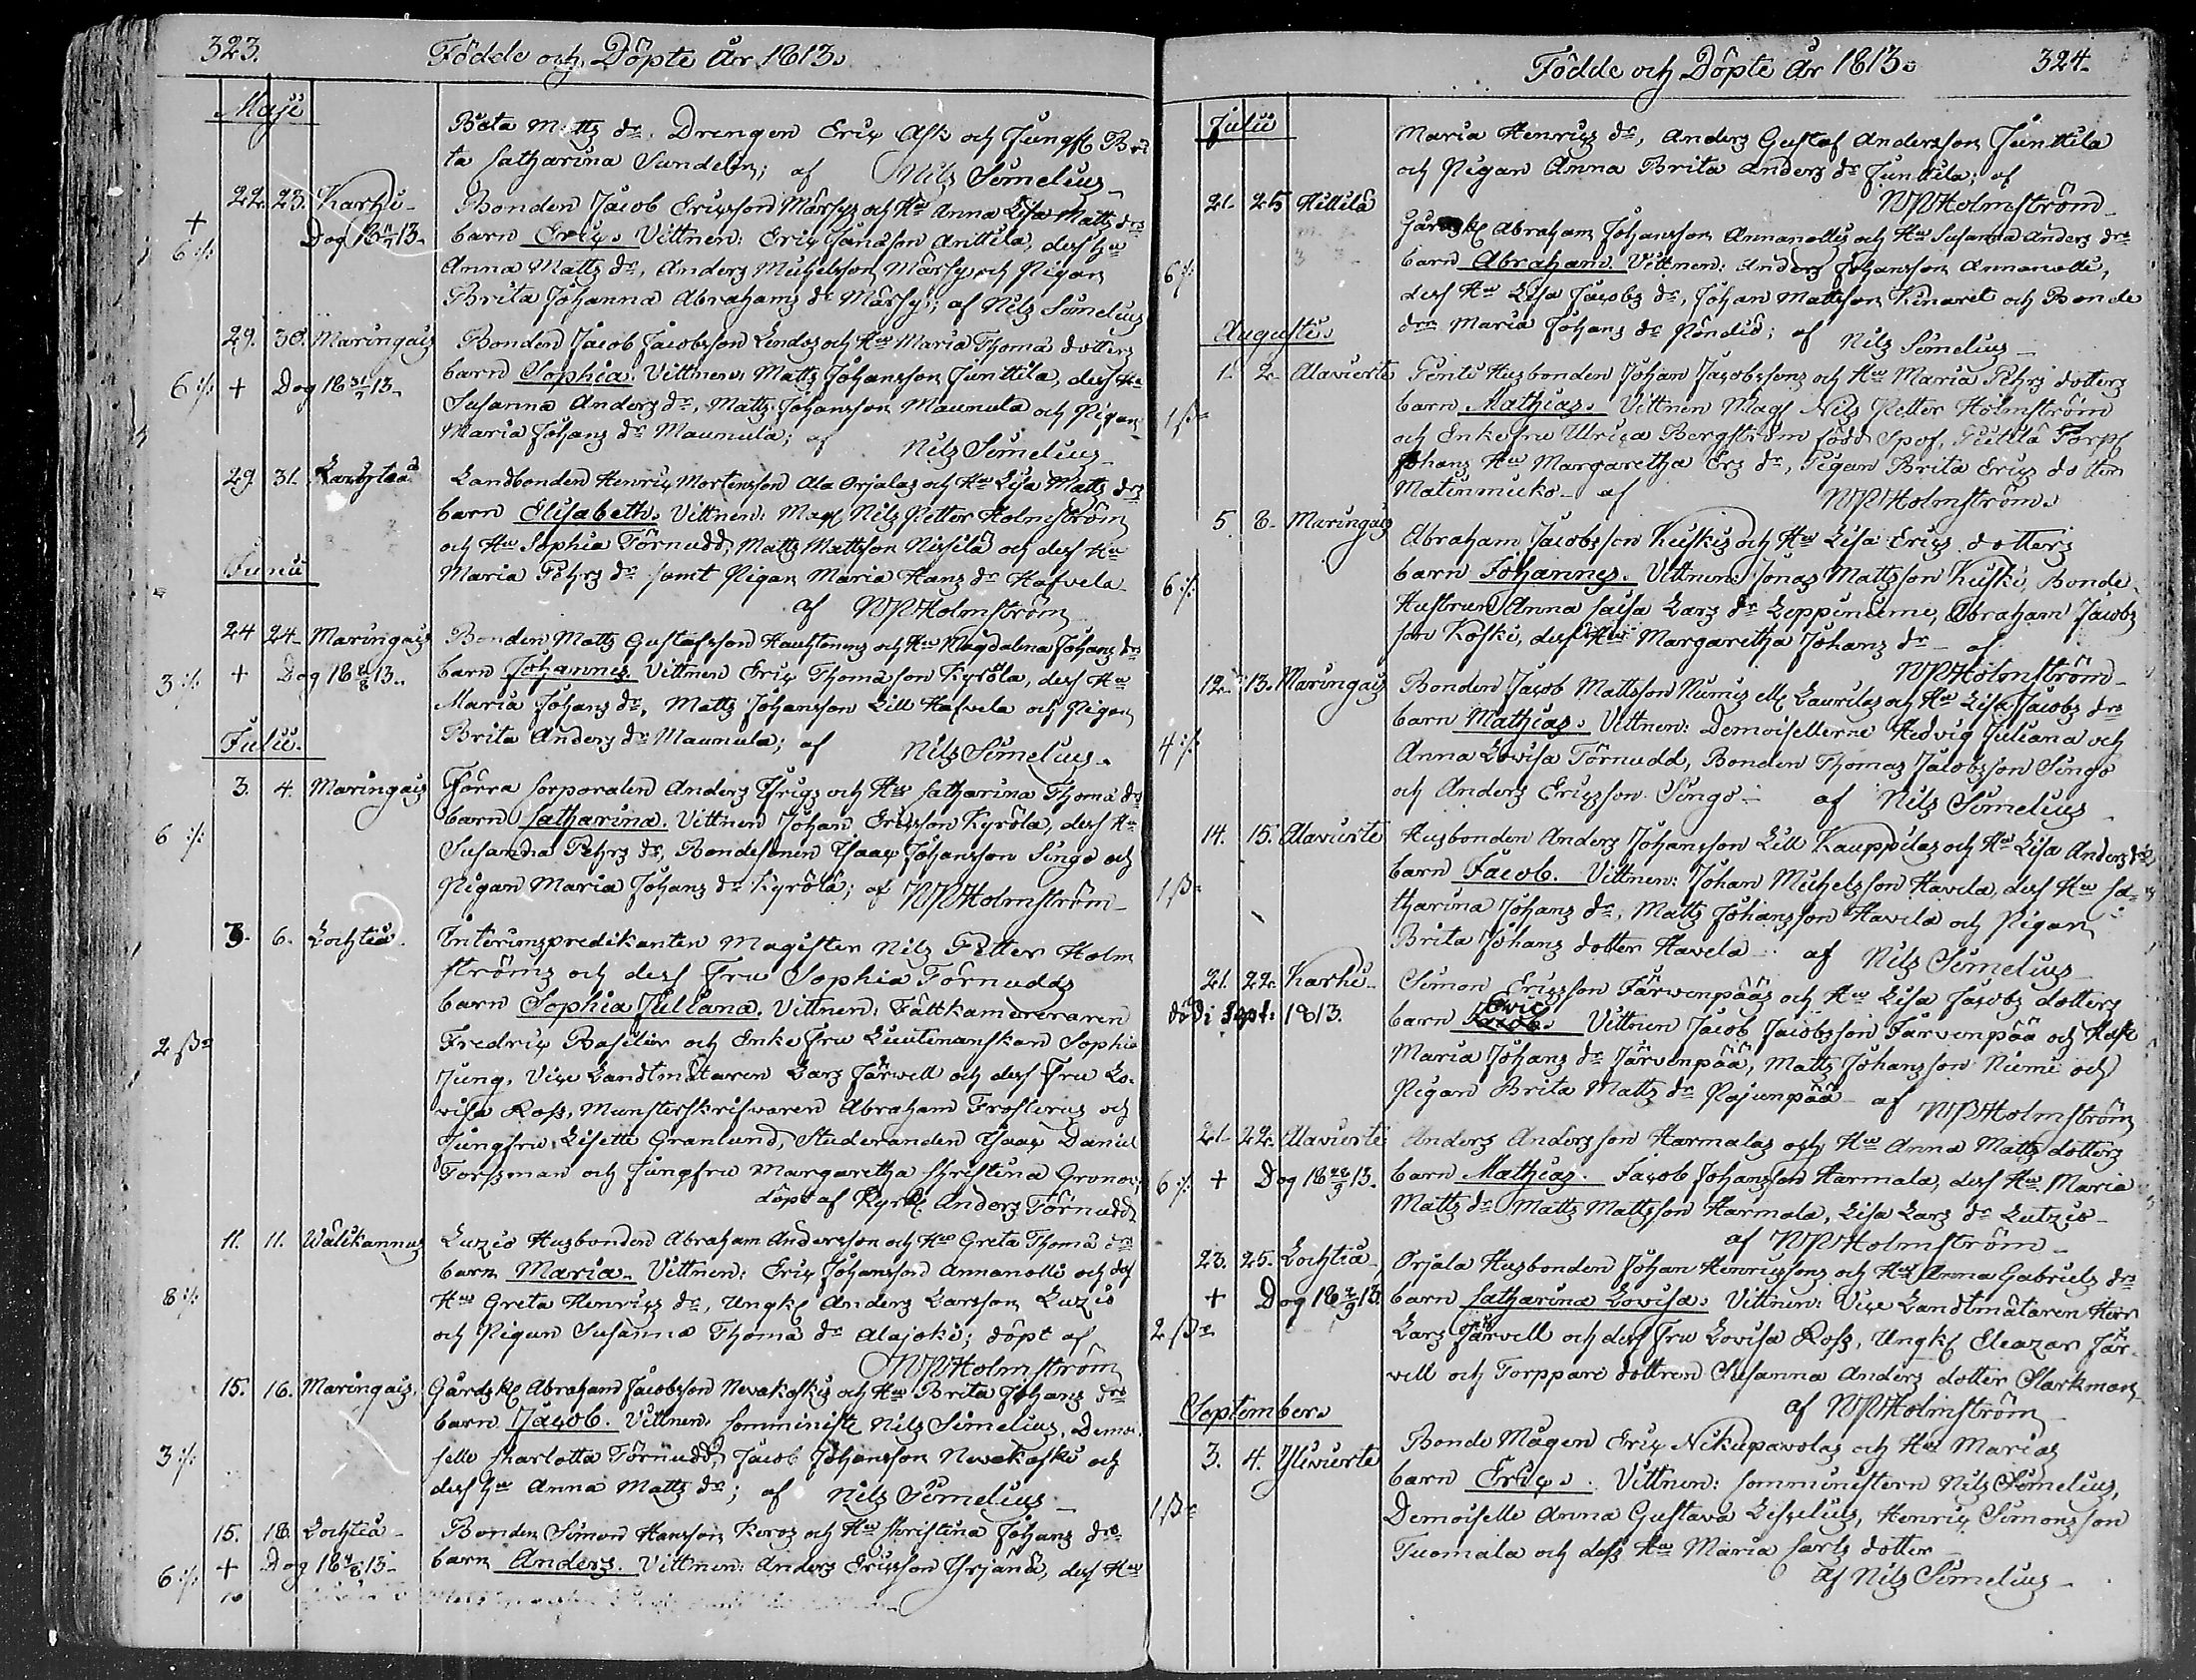 323. Födde och Döpte år 1813.
Maji
Beta Matts dr. Drengen Eric Ask och Jungf: Bri
ta Catharina Sundelin; af Nils Simelius
22. 23. Karhi- Bonden Jacob Ericsson Märsys och Hu Anna Lisa Matts drs
+ Dog 18 13. barn Eric. Vittnen: Eric Jonasson Anttila, dess Hu
6 :/: Anna Matts dr, Anders Michelsson Märsy och Pigan
Brita Johanna Abrahams dr Märsy; af Nils Simelius
29. 30. Maringais Bonden Jacob Jacobsson Lindos och Hu Maria Thomä dotters
6 :/: + Dog 18 31/7 13. barn Sophia. Vittnen: Matts Johansson Junttila, dess Hu
Susanna Anders dr, Matts Johansson Maunula och Pigan
Maria Johans dr Maunula; af Nils Simelius
29. 31. Landbonden Henric Mortensson Ala Orjalas och Hu Lisa Matts drs
barn Elisabeth. Vittnen: Mag: Nils Petter Holmström
och Hu Sophia Törnudd, Matts Mattsson Nissilä och dess Hu
Junii
Maria Pehrs dr samt Pigan Maria Hans dr Hafvela
af NPHolmström
24 24. Maringais Bonden Matts Gustafsson Hauhtonens och Hu Magdalena Johans drs
3 :/: + Dog 18 13. barn Johannes. Vittnen Eric Thomasson Kyrölä, dess Hu
Maria Johans dr, Matts Johansson Lill Hafvela och Pigan
Julii.
Brita Anders dr Maunula; af Nils Simelius.
3. 4. Maringais Förra Corporalen Anders Yhrigs och Hus Catharina Thomä drs
6 :/: barn Catharina. Vittnen Johan Ericsson Kyrölä, dess Hu
Susanna Pehrs dr, Bondesonen Isaac Johansson Singo och
Pigan Maria Johans dr Kyrölä; af NPHolmström
3. 6. Lochteå. Interimspredikanten Magister Nils Petter Holm
ströms och dess Fru Sophia Törnudds
barn Sophia Juliana. Vittnen: Fältkamereraren
2 ßr Fredric Basilier och Enke Fru Lieutenanskan Sophia
Jung, Vice Landtmätaren Lars Järvell och dess Fru Lo-
visa Ross, Munsterskrifvaren Abraham Frosterus och
Jungfru Lisette Granlund, Studeranden Isaac Daniel
Forssman och Jungfru Margaretha Christina Gronow;
döpt af Kyrkh: Anders Törnudd
11. 11. Wälikannus Luzio Husbonden Abraham Andersson och Hus Greta Thomä drs
barn Maria. Vittnen: Eric Johansson Annanolli och dess
8 :/: Hu Greta Henrics dr, Ungk: Anders Larsson Luzio
och Pigan Susanna Thomä dr Alajoki; döpt af
NPHolmström
15. 16. Maringais. Gårdsk: Abraham Jacobsson Nevakoskis och Hu Brita Johans drs
barn Jacob. Vittnen: Comminist: Nils Simelius, Demoi-
3 :/: selle Charlotta Törnudd, Jacob Johansson Nevakoski och
dess Hu Anna Matts dr; af Nils Simelius
15. 18. Lochteå Bonden Simon Hansson Keros och Hu Christina Johans drs
6 :/: + Dog 18 13 barn Anders. Vittnen: Anders Ericsson Yrjänä, dess Hu
Födde och Döpte år 1813. 324.
Julii
Maria Henrics dr, Anders Gustaf Andersson Junttila
och Pigan Anna Brita Anders dr Junttila; af
NPHolmström
21. 25 Hillilä Gårdsk: Abraham Johansson Annanollis och Hu Susanna Anders drs
6 :/: barn Abraham. Vittnen: Anders Johansson Annanolli,
dess Hu Lisa Jacobs dr, Johan Mattsson Kinaret och Bonde
Augusti.
drn Maria Johans dr Pöndiö; af Nils Simelius
1. 2. Alavierte Pentti Husbonden Johan Jacobssons och Hu Maria Pehrs dotters
1 ßr barn Mathias. Vittnen Mag: Nils Petter Holmström
och Enkefru Ulrica Bergström född Spof, Torp:
Johans Hu Margaretha Ers dr, Pigan Brita Erics dotter
Matinmicko- af NPHolmström.
5 8. Maringais Abraham Jacobsson Kuskis och Hu Lisa Erics dotters
6 :/: barn Johannes. Vittnen: Jonas Mattsson Kuski, Bonde
Hustrun Anna Caisa Lars dr Leppiniemi, Abraham Jacobs
son Koski, dess Hu Margaretha Johans dr - af
NPHolmström
12. 13. Maringais Bonden Jacob Mattsson Niemis ell: Laurilas och Hu Lisa Jacobs drs
4 :/: barn Mathias. Vittnen: Demoisellerne Hedvig Juliana och
Anna Lovisa Törnudd, Bonden Thomas Jacobsson Singo
och Anders Ericsson Singo- af Nils Simelius
14. 15. Alavierte Husbonden Anders Johansson Lill Kauppilas och Hu Lisa Anders drs
1 ßr barn Jacob. Vittnen: Johan Michelsson Havela, dess Hu Ca-
tharina Johans dr, Matts Johansson Havela och Pigan
Brita Johans dotter Havela- af Nils Simelius
21. 22. Karhi- Simon Ericsson Järvenpääs och Hu Lisa Jacobs dotters
död i Sept: 1813. barn Eric Vittnen Jacob Jacobsson Järvenpää och Hust
Maria Johans dr Järvenpää, Matts Johansson Niemi och
Pigan Brita Matts dr Pajunpää- af NPHolmström
21. 22. Alavierte Anders Andersson Harmalas och Hu Anna Matts dotters
6 :/: + Dog 18 28/9 13. barn Mathias. Jacob Johansson Harmala, dess Hu Maria
Matts dr Matts Mattsson Harmala, Lisa Lars dr Lutzio-
af NPHolmström-
23. 25. Lochteå- Orjala Husbonden Johan Henricssons och Hu Anna Gabriels drs
+ Dog 18 2/9 13 barn Catharina Lovisa. Vittnen: Vice Landtmätaren Herr
2 ßr Lars Järvell och dess Fru Lovisa Ross, Ungk: Eleazar Jär-
vell och Torppare dottren Susanna Anders dotter Slarkman
af NPHolmström
September.
3. 4. Ylivierte Bonde Mågen Eric Nikupavolas och Hu Marias
1 ßr barn Eric. Vittnen: Comministern Nils Simelius,
Demoiselle Anna Gustava Lisselius, Henric Simonsson
Tuomala och dess Hu Maria Carls dotter
af Nils Simelius-